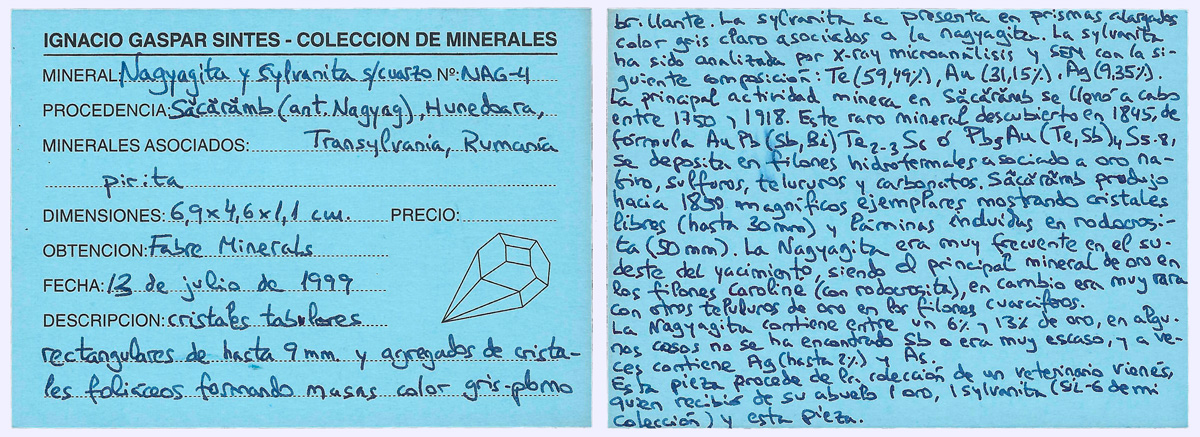 IGNACIO GASPAR SINTES - COLECCION DE MINERALES
MINERAL: Nagyagita y sylvanita s/cuarzo Nº: NAG-4
PROCEDENCIA: Săcărămb (ant. Nagyag), Hunedoara,
MINERALES ASOCIADOS: Transylvania, Rumanía
pirita
DIMENSIONES: 6,9x4,6x1,1 cm. PRECIO:
OBTENCION: Fabre Minerals
FECHA: 13 de julio de 1999
DESCRIPCION: cristales tabulares
rectangulares de hasta 9 mm. y agregados de crista-
les foliáceos formando masas color gris-plomo
brillante. La sylvanita se presenta en prismas alargados
color gris claro asociados a la nagyagita. La sylvanita
ha sido analizada por X-ray microanálisis y SEM con la si-
guiente composición: Te (59,49%), Au (31,15%), Ag (9,35%).
La principal actividad minera en Săcărămb se llevó a cabo
entre 1750 y 1918. Este raro mineral descubierto en 1845, de
fórmula AuPb(Sb,Bi)Te2-3S6 ó Pb5Au(Te,Sb)4S5-8,
se deposita en filones hidrotermales asociado a oro na-
tivo, sulfuros, telururos y carbonatos. Săcărămb produjo
hacia 1850 magníficos ejemplares mostrando cristales
libres (hasta 30mm) y láminas incluidas en rodocrosi-
ta (50 mm). La Nagyagita era muy frecuente en el su-
deste del yacimiento, siendo el principal mineral de oro en
los filones Caroline (con rodocrosita), en cambio era muy rara
con otros telururos de oro en los filones cuarcíferos.
La Nagyagita contiene entre un 6% y 13% de oro, en algu-
nos casos no se ha encontrado Sb o era muy escaso, y a ve-
ces contiene Ag (hasta 2%) y As.
Esta pieza procede de la colección de un veterinario vienés,
quien recibió de su abuelo 1 oro, 1 sylvanita (SIL-6 de mi
colección) y esta pieza.